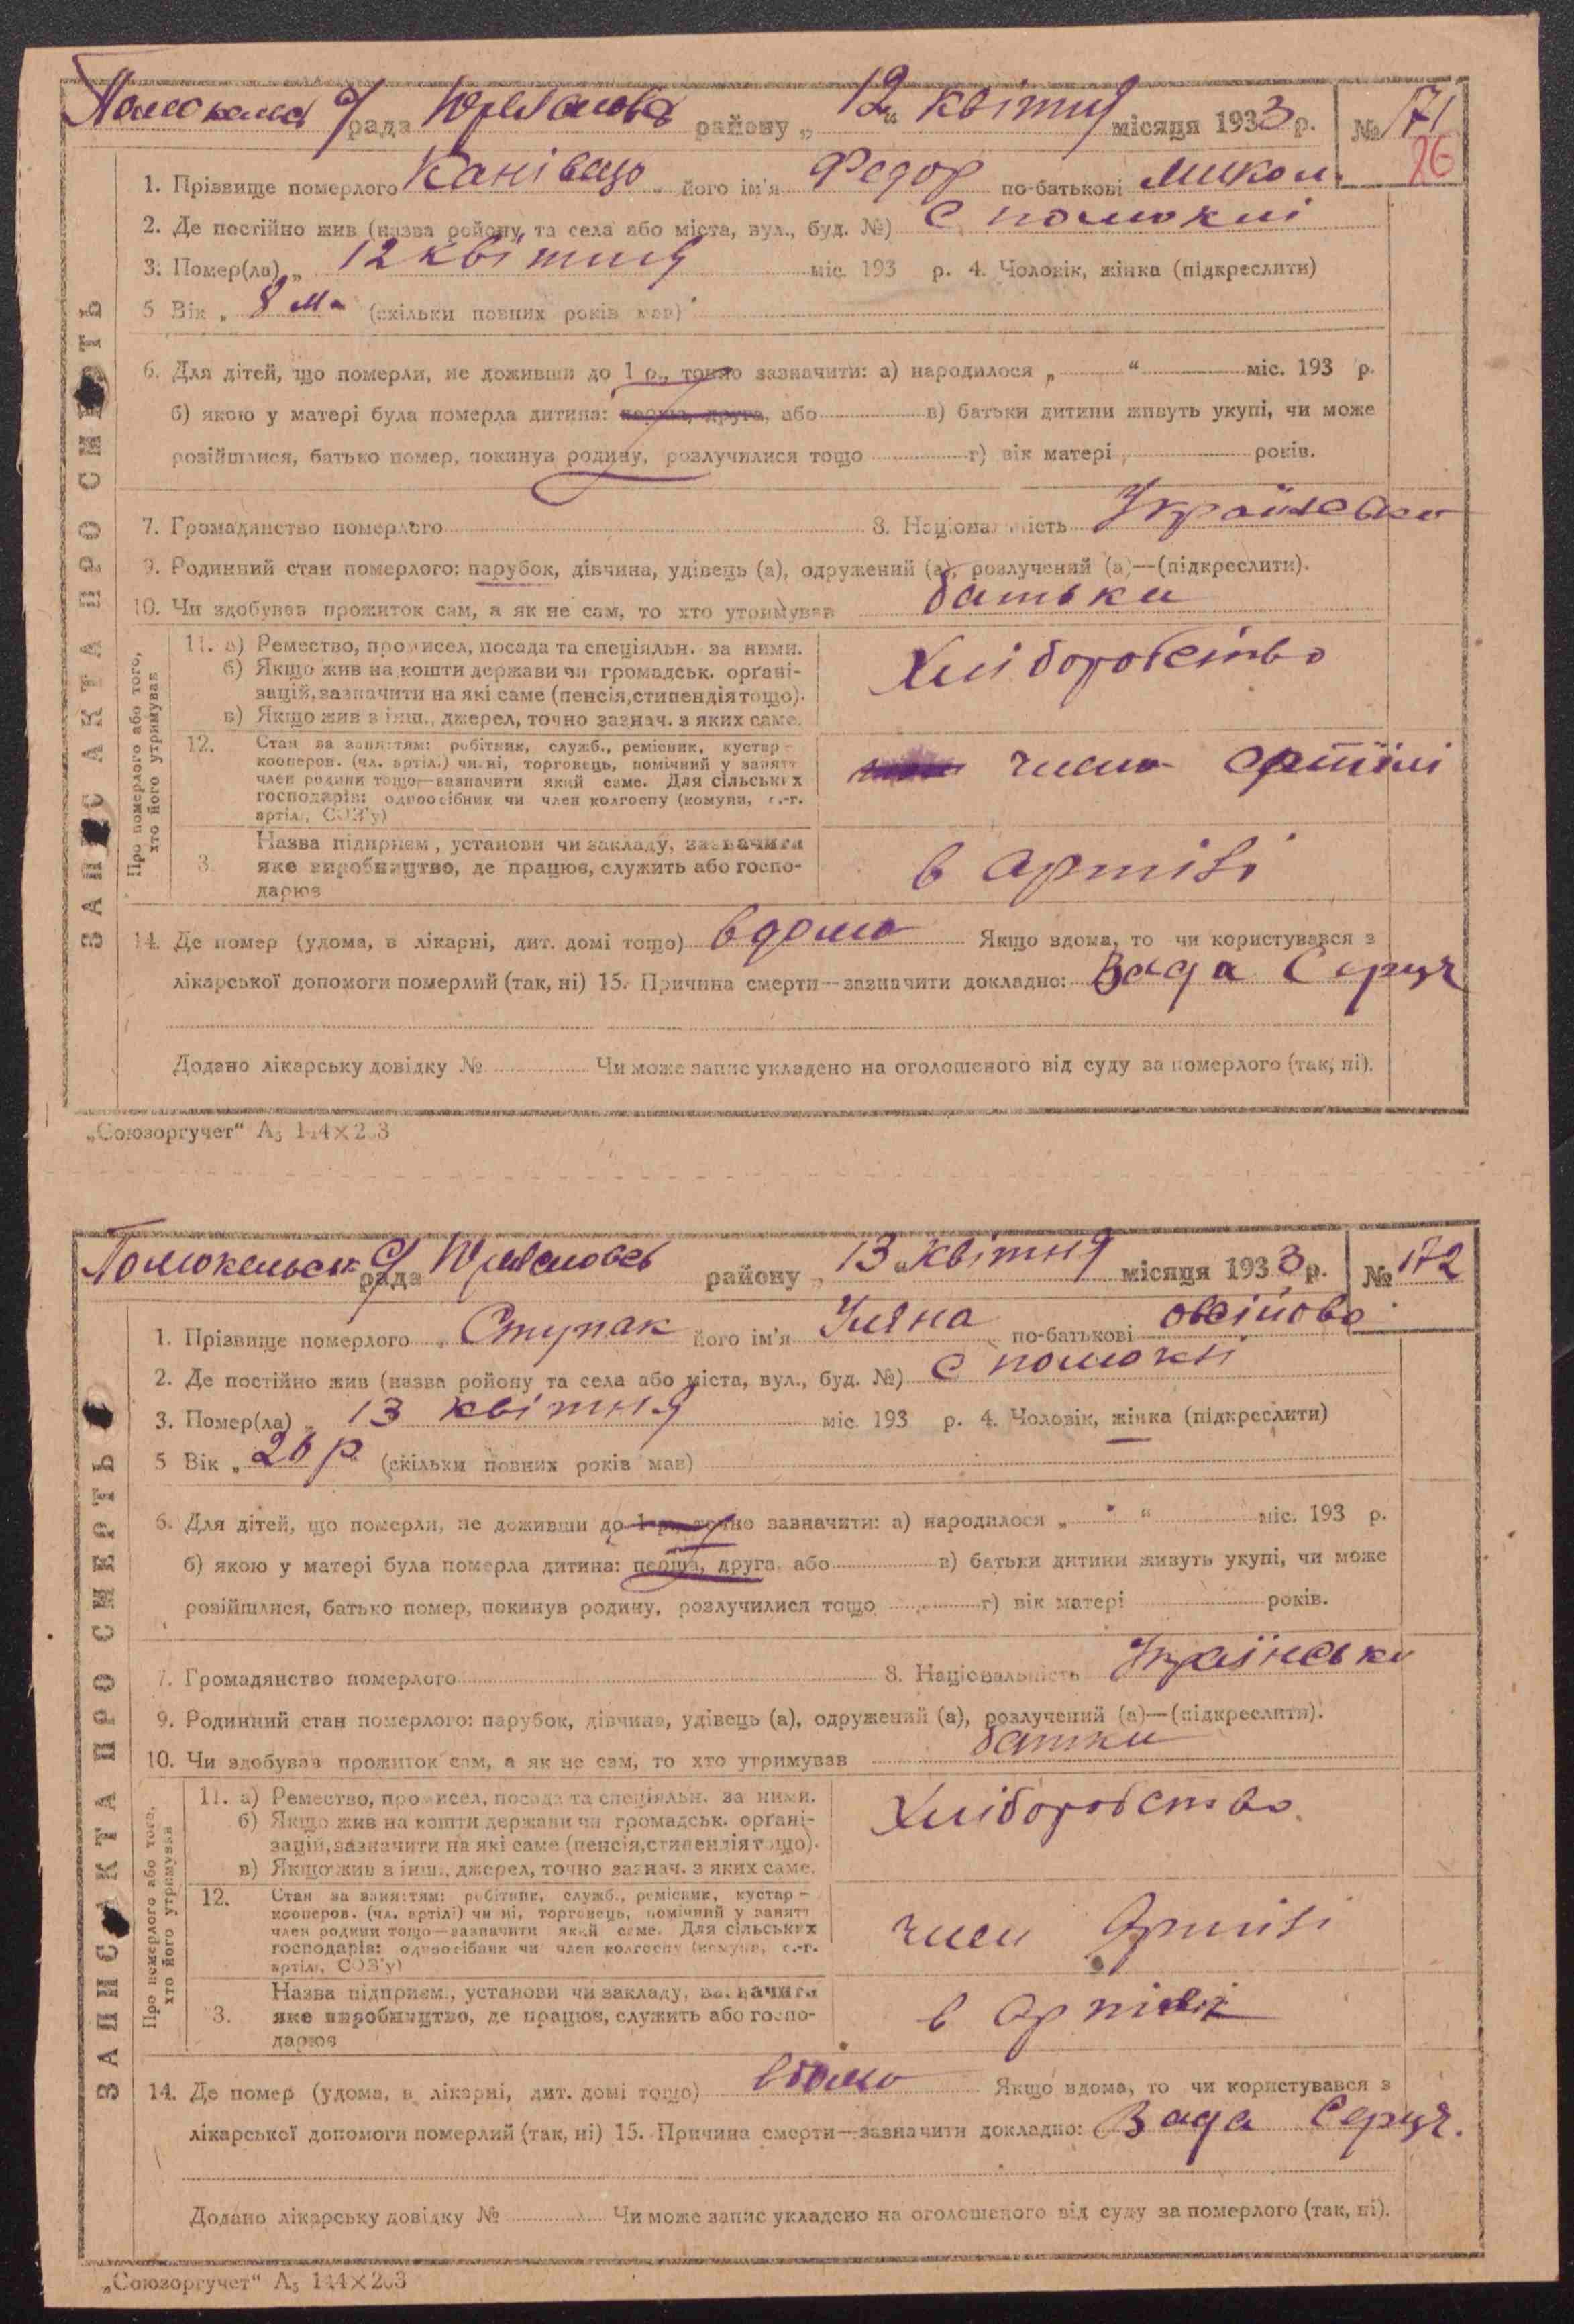 с/рада району „ 12 “ квітня місяця 1933 р. № 171
26
1. Прізвище померлого його ім'я Федор по-батькові Микол.
2. Де постійно жив (назва району та села або міста, вул., буд. №) с
3. Помер(ла) „ 12 квітня міс. 193 р. 4. Чоловік, жінка (підкреслити)
5 Вік „ 8 м. (скільки повних років мав)
6. Для дітей, що померли, не доживши до 1 р., точно зазначити: а) народилося „ “ міс. 193 р.
б) якою у матері була померла дитина: перша, друга, або в) батьки дитини живуть укупі, чи може
розійшлися, батько помер, покинув родину, розлучилися тощо г) вік матері років.
7. Громадянство померлого 8. Національність
9. Родинний стан померлого: парубок, дівчина, удівець (а), одружений (а), розлучений (а)—(підкреслити).
10. Чи здобував прожиток сам, а як не сам, то хто утримував батьки
ЗАПИС АКТА ПРО СМЕРТЬ
Про померлого або того, хто його утримував
11. а) Ремество, промисел, посада та спеціяльн. за ними.
б) Якщо жив на кошти держави чи громадськ. орґані-
зацій, зазначити на які саме (пенсія, стипендія тощо).
в) Якщо жив з інш., джерел, точно зазнач. з яких саме.
Хліборобство
12. Стан за заняттям: робітник, служб., ремісник, кустар-
кооперов. (чл. артілі) чи ні, торговець, помічний у занятт
член родини тощо—зазначити який саме. Для сільських
господарів: одноосібник чи член колгоспу (комуни, с.-г.
артілі, СОЗ'у)
артілі
3. Назва підприєм, установи чи закладу, зазначити
яке виробництво, де працює, служить або госпо-
дарює
в артілі
14. Де помер (удома, в лікарні, дит. домі тощо) вдома Якщо вдома, то чи користувався з
лікарської допомоги померлий (так, ні) 15. Причина смерти—зазначити докладно: Вада Серця
Додано лікарську довідку № Чи може запис укладено на оголошеного від суду за померлого (так, ні).
„Союзоргучет“ А₅ 144×203
с/рада району „ 13 “ квітня місяця 1933 р. № 172
1. Прізвище померлого „ Ступак його ім'я Уляна по-батькові
2. Де постійно жив (назва району та села або міста, вул., буд. №) с
3. Помер(ла) „ 13 квітня міс. 193 р. 4. Чоловік, жінка (підкреслити)
5 Вік „ р (скільки повних років мав)
6. Для дітей, що померли, не доживши до 1 р., точно зазначити: а) народилося „ “ міс. 193 р.
б) якою у матері була померла дитина: перша, друга, або в) батьки дитини живуть укупі, чи може
розійшлися, батько помер, покинув родину, розлучилися тощо г) вік матері років.
7. Громадянство померлого 8. Національність
9. Родинний стан померлого: парубок, дівчина, удівець (а), одружений (а), розлучений (а)—(підкреслити).
10. Чи здобував прожиток сам, а як не сам, то хто утримував
ЗАПИС АКТА ПРО СМЕРТЬ
Про померлого або того, хто його утримував
11. а) Ремество, промисел, посада та спеціяльн. за ними.
б) Якщо жив на кошти держави чи громадськ. орґані-
зацій, зазначити на які саме (пенсія, стипендія тощо).
в) Якщо жив з інш., джерел, точно зазнач. з яких саме.
Хліборобство
12. Стан за заняттям: робітник, служб., ремісник, кустар-
кооперов. (чл. артілі) чи ні, торговець, помічний у занятт
член родини тощо—зазначити який саме. Для сільських
господарів: одноосібник чи член колгоспу (комуни, с.-г.
артілі, СОЗ'у)
артілі
3. Назва підприєм., установи чи закладу, зазначити
яке виробництво, де працює, служить або госпо-
дарює
в артілі
14. Де помер (удома, в лікарні, дит. домі тощо) вдома Якщо вдома, то чи користувався з
лікарської допомоги померлий (так, ні) 15. Причина смерти—зазначити докладно: Вада Серця.
Додано лікарську довідку № Чи може запис укладено на оголошеного від суду за померлого (так, ні).
„Союзоргучет“ А₅ 144×203